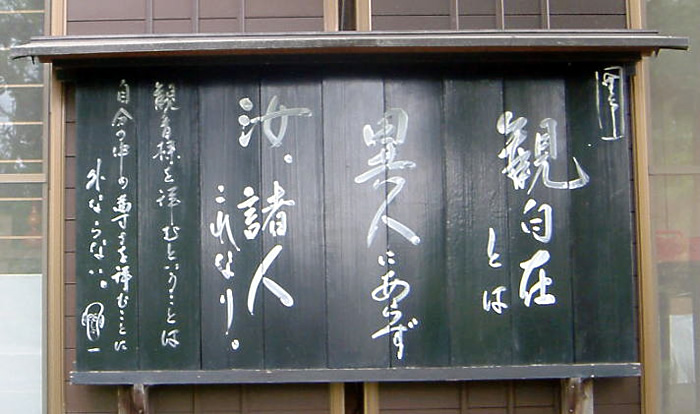 観自在
とは
異人にあらず
汝、諸人
これなり。
観音様を拝むということは
自分の中の尊さを拝むことに
外ならない。